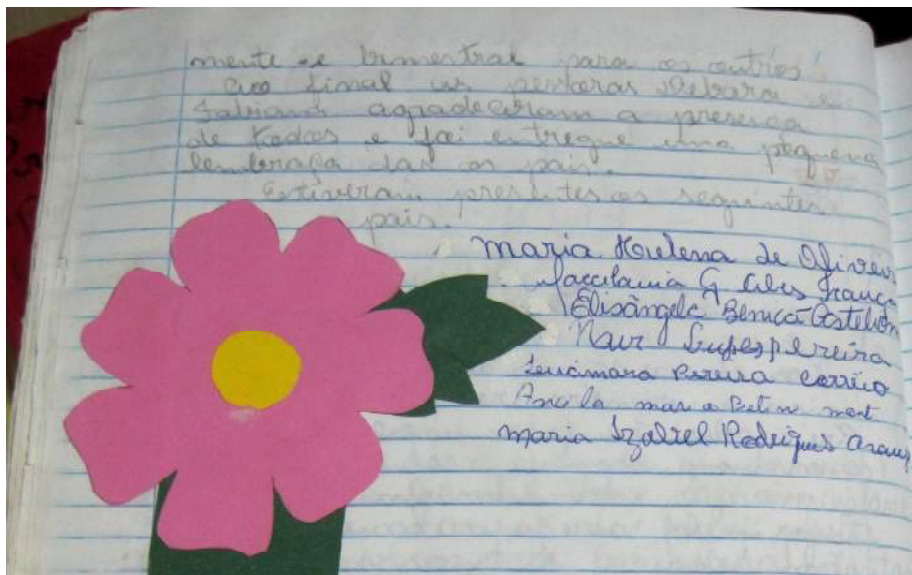 mente e bimestral para os outros
Ao final as pessoras Debora e
Fabiana agradeceram a presença
de todos e foi entregue uma pequena
lembraça das os pais.
Estiveram presentes os seguintes
pais.
Maria Helena de Oliveira
G Alves França
Elisângela
Nair Lupes pereira
Lucimara Pereira
Maria Izabel Rodrigues Arauj